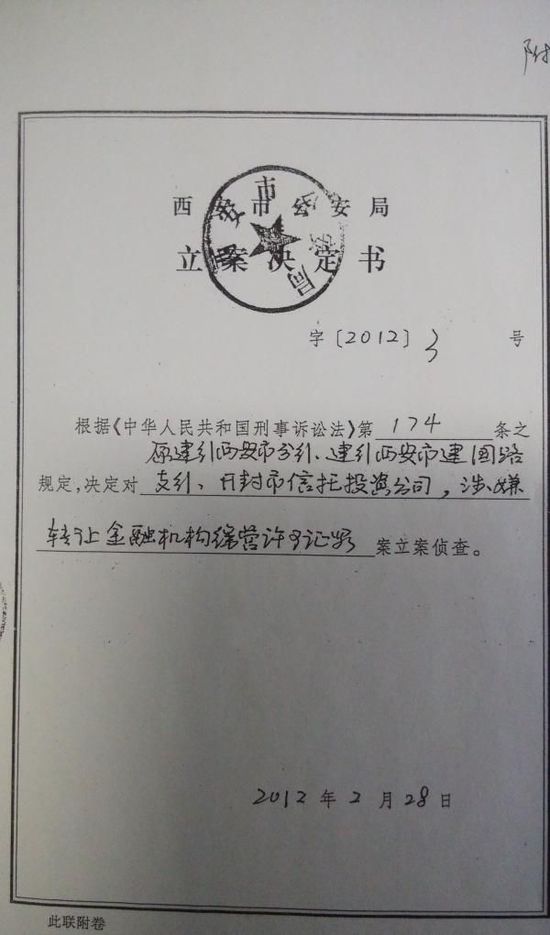 附
西安市公安局
立案决定书
西安市公安局
字〔2012〕3 号
根据《中华人民共和国刑事诉讼法》第 174 条之
原建行西安市分行、建行西安市建国路
规定,决定对 支行、开封市信托投资公司,涉嫌
转让金融机构经营许可证 案立案侦查。
2012 年 2 月 28 日
此联附卷